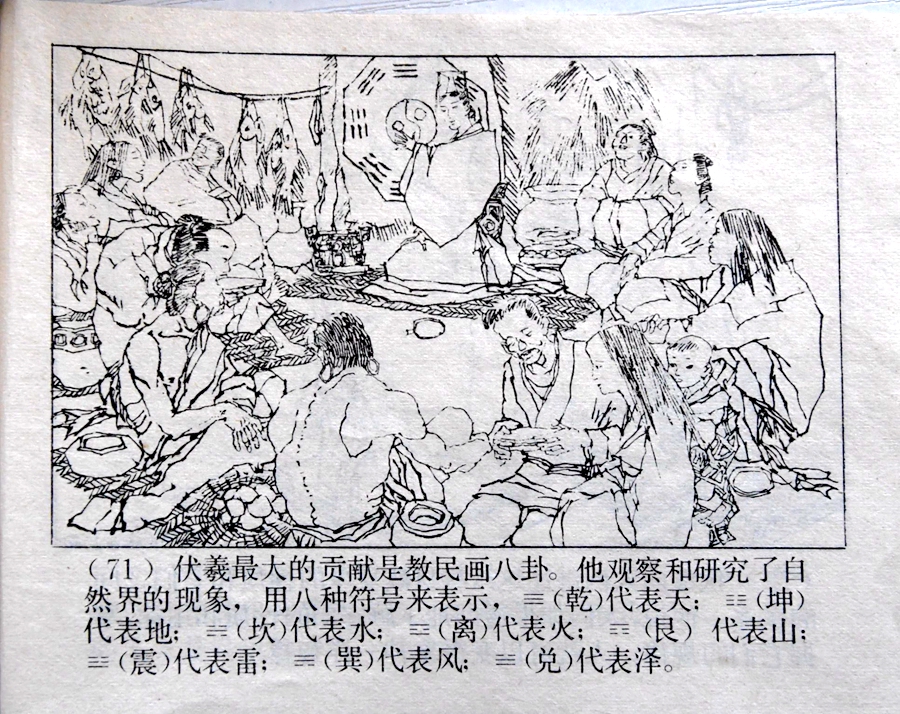 (71) 伏羲最大的贡献是教民画八卦。他观察和研究了自
然界的现象，用八种符号来表示，☰(乾)代表天；☷(坤)
代表地；☵(坎)代表水；☲(离)代表火；☶(艮) 代表山；
☳(震)代表雷；☴(巽)代表风；☱(兑)代表泽。